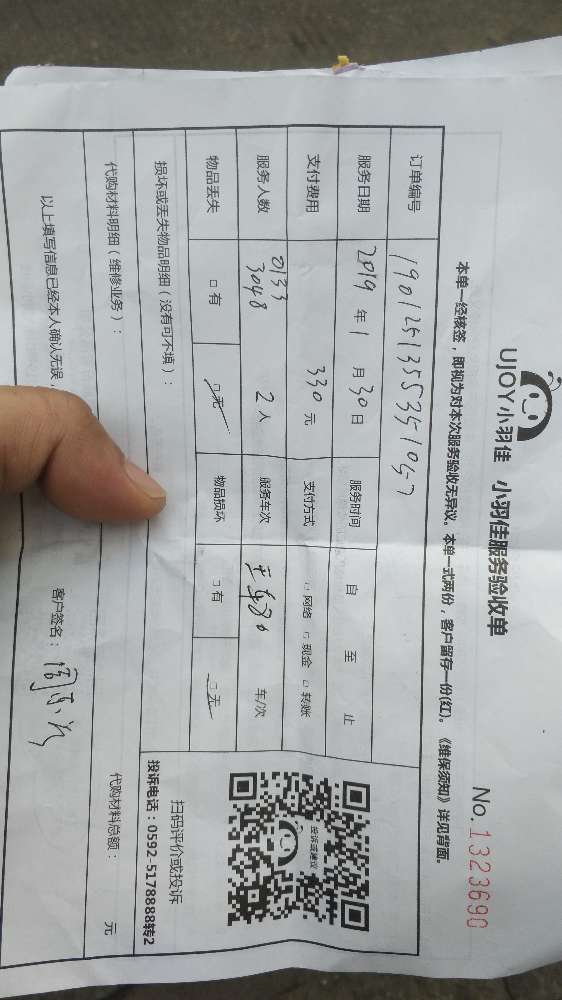 UJOY小羽佳 小羽佳服务验收单
No.1323690
本单一经核签，即视为对本次服务验收无异议。本单一式两份，客户留存一份(红)。《维保须知》详见背面。
订单编号
服务日期 2019 年 1 月 30 日 服务时间 自 至 止
支付费用 330 元 支付方式 □ 网络 □ 现金 □ 转账
服务人数 0133 3048 2 人 服务车次 车/次
物品丢失 □ 有 □ 无 物品损坏 □ 有 □ 无
损坏或丢失物品明细（没有可不填）：
投诉或建议
扫码评价或投诉
投诉电话：0592-5178888转2
代购材料明细（维修业务）： 代购材料总额： 元
以上填写信息已经本人确认无误， 客户签名：